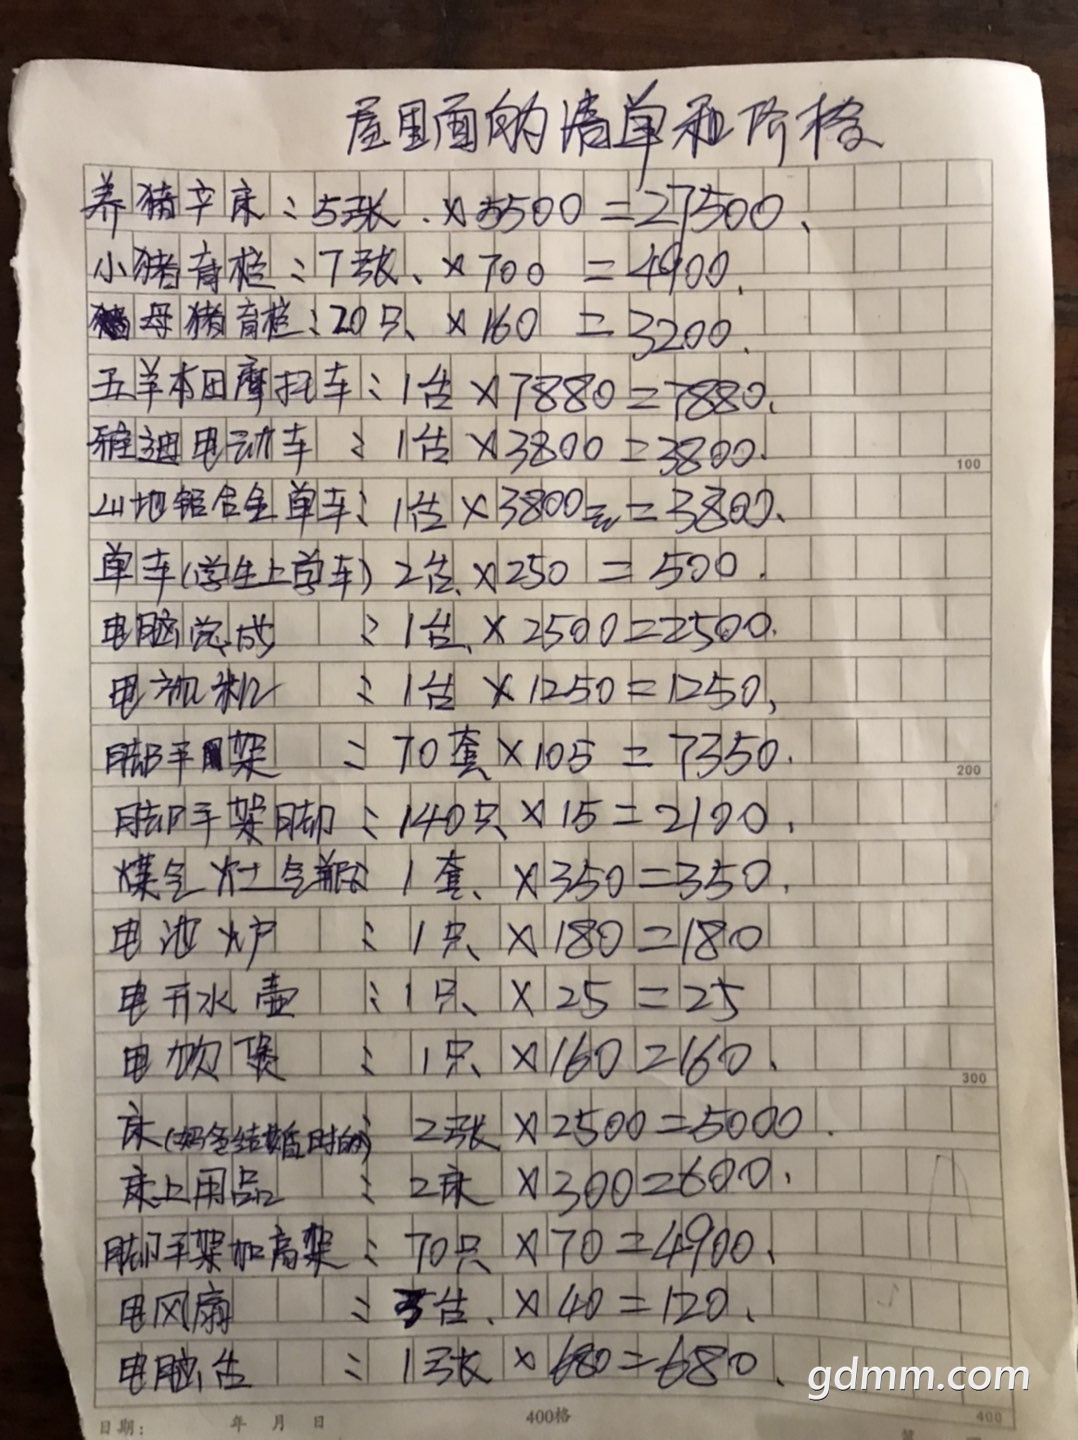 屋里面的清单和价格
养猪卒床：5张.×5500=27500、
小猪育栏：7张、×700=4900.
母猪育栏：20只、×160=3200.
五羊本田摩托车：1台×7880=7880.
雅迪电动车：1台×3800=3800.
山地铝合金单车：1台×3800元=3800.
单车(学生上学车)2台、×250=500.
电脑总成：1台、×2500=2500.
电视机：1台×1250=1250、
脚手架：70套×105=7350.
脚手架脚：140只×15=2100.
煤气灶气瓶：1套、×350=350.
电池炉：1只、×180=180
电开水壶：1只、×25=25
电饭煲：1只、×160=160.
床(妈爸结婚时的)：2张×2500=5000.
床上用品：2床×300=600.
脚手架加高架：70只×70=4900、
电风扇：3台.×40=120.
电脑台：1张×680=680.
gdmm.com
日期： 年 月 日
400格
100
200
300
400